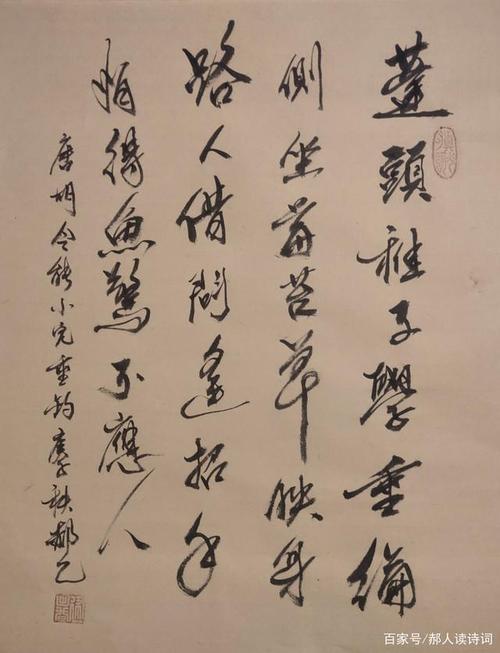 蓬頭稚子學垂綸
側坐莓苔草映身
路人借問遙招手
怕得魚驚不應人
唐胡令能小兒垂釣 郝
百家号/郝人读诗词